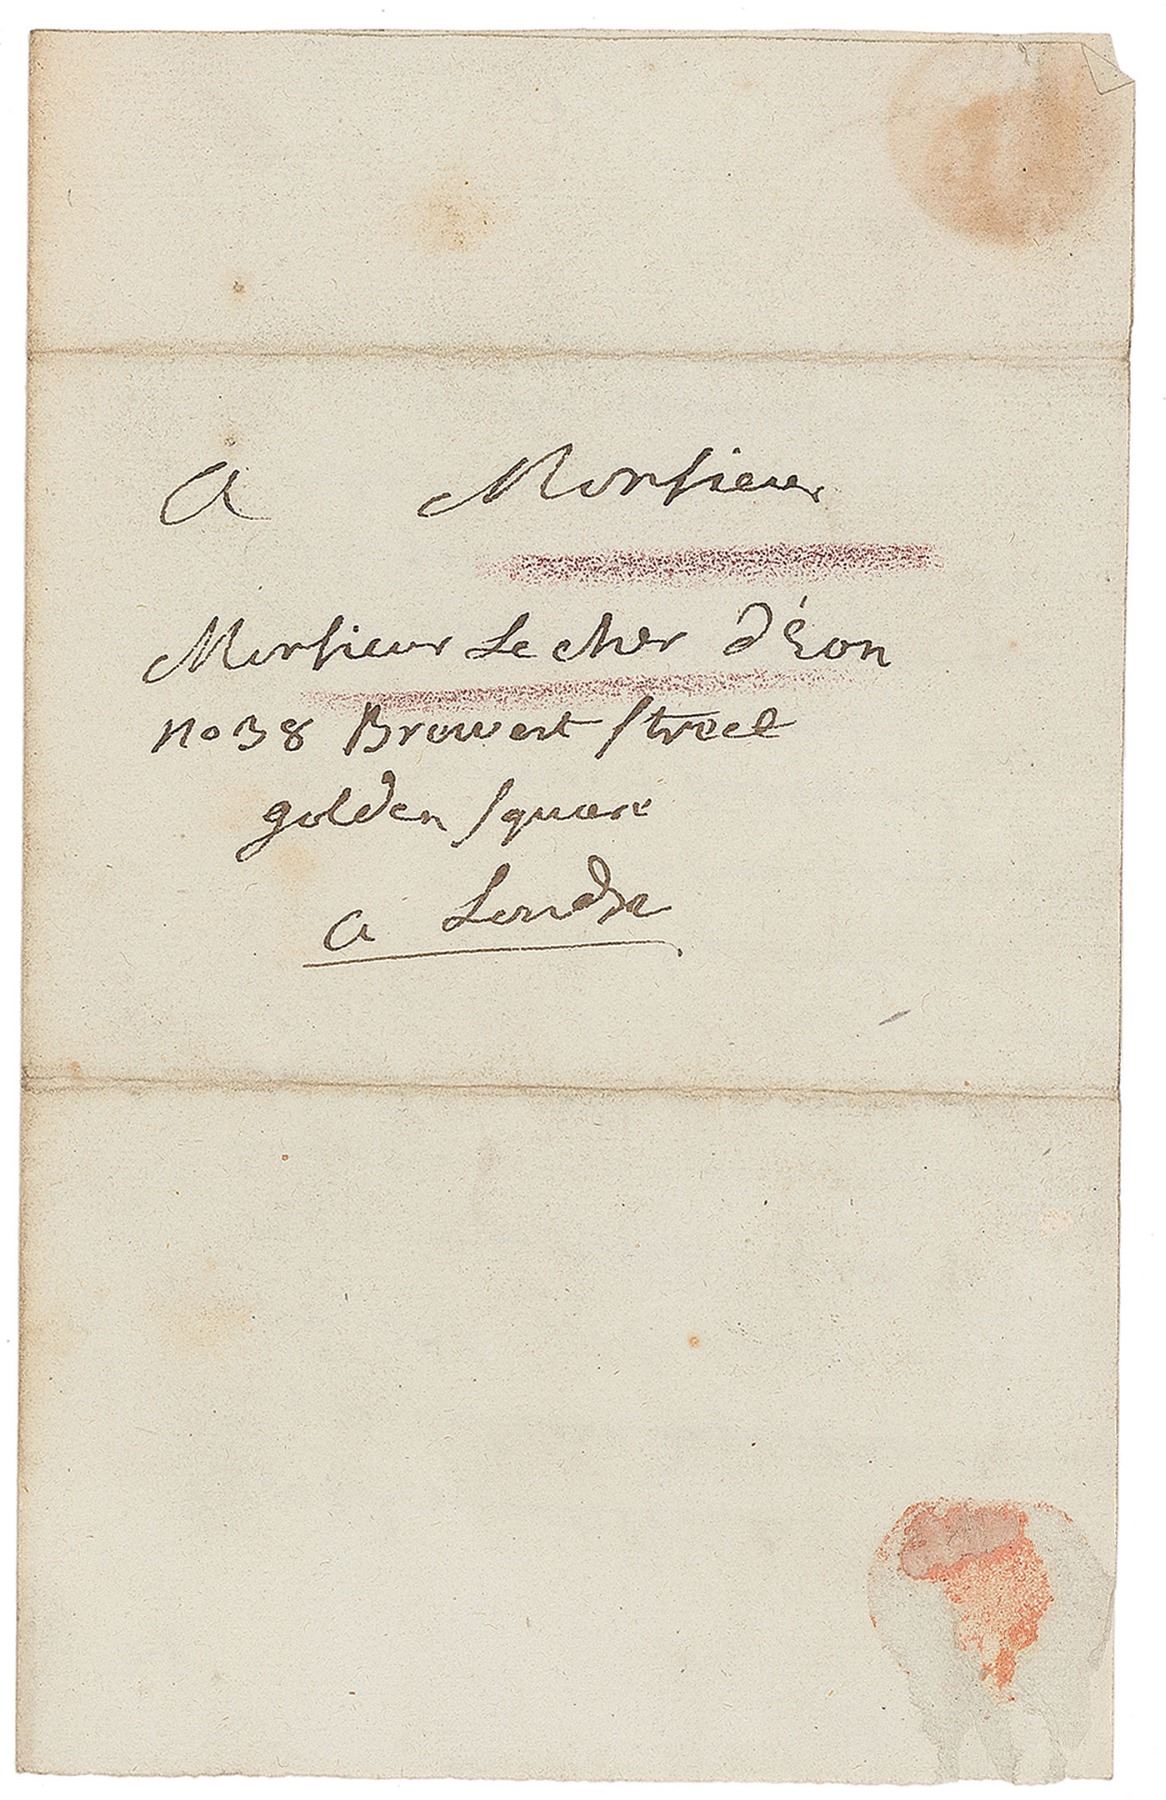 A Monsieur
Monsieur Le cher d'Éon
no 38 Browert Street
golden square
a Londre